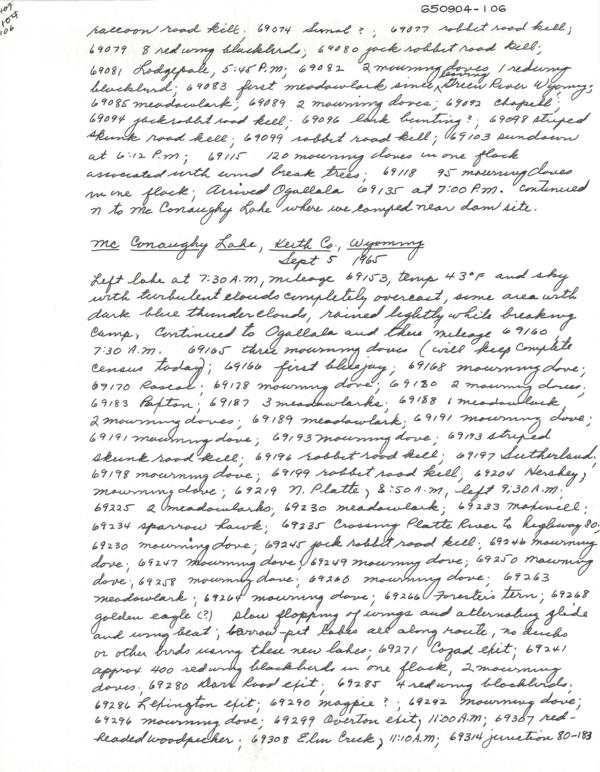 109
104
106
G50904-106
raccoon road kill; 69074 Sunol ?; 69077 rabbit road kill;
69079 8 redwing blackbirds; 69080 jack rabbit road kill;
69081 Lodgepole, 5:45 P.M; 69082 2 mourning doves, 1 redwing
blackbird; 69083 first meadowlark since leaving Green River Wyomg;
69085 meadowlark; 69089 2 mourning doves; 69092 chapell;
69094 jack rabbit road kill; 69096 lark bunting ?; 69098 striped
skunk road kill; 69099 rabbit road kill; 69103 sundown
at 6:12 P.M; 69115 120 mourning doves in one flock
associated with wind break trees; 69118 95 mourning doves
in one flock; Arrived Ogallala 69135 at 7:00 P.M. Continued
N to Mc Conaughy Lake where we camped near dam site.
Mc Conaughy Lake, Keith Co., Wyoming
Sept 5 1965
Left lake at 7:30 A.M, mileage 69153, temp 43°F and sky
with turbulent clouds completely overcast, some area with
dark blue thunder clouds, rained lightly while breaking
camp, Continued to Ogallala and there mileage 69160,
7:30 A.M. 69165 three mourning doves (will keep complete
census today); 69166 first bluejay; 69168 mourning dove;
69170 Roscoe; 69178 mourning dove; 69180 2 mourning doves;
69183 Paxton; 69187 3 meadowlarks; 69188 1 meadowlark,
2 mourning doves; 69189 meadowlark; 69191 mourning dove;
69191 mourning dove; 69193 mourning dove; 69193 striped
skunk road kill; 69196 rabbit road kill; 69197 Sutherland;
69198 mourning dove; 69199 rabbit road kill; 69204 Hershey;
mourning dove; 69219 N. Platte, 8:50 A.M, left 9:30 A.M.
69225 2 meadowlarks, 69230 meadowlark; 69233 Maxwell;
69234 sparrow hawk; 69235 Crossing Platte River to highway 80;
69230 mourning dove; 69245 jack rabbit road kill; 69246 mourning
dove; 69247 mourning dove; 69249 mourning dove; 69250 mourning
dove; 69258 mourning dove; 69260 mourning dove; 69263
meadowlark; 69264 mourning dove; 69266 Forester's tern; 69268
golden eagle (?) slow flopping of wings and alternating glide
and wing beat; borrow-pit lakes all along route, no ducks
or other birds using these new lakes; 69271 Cozad exit; 69241
approx 400 redwing blackbirds in one flock, 2 mourning
doves; 69280 Darr Road exit; 69285 4 redwing blackbirds;
69286 Lexington exit; 69290 magpie ?; 69292 mourning dove;
69296 mourning dove; 69299 Overton exit, 11:00 A.M; 69307 red-
headed woodpecker; 69308 Elm Creek, 11:10 A.M; 69314 junction 80-183